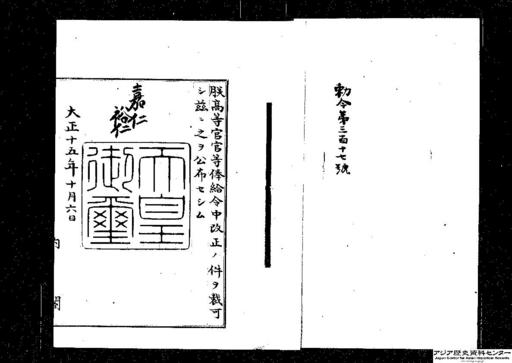 勅令第三百十七號
朕高等官官等俸給令中改正ノ件ヲ裁可
シ茲ニ之ヲ公布セシム
嘉仁
裕仁
天皇御璽
大正十五年十月六日
内閣
アジア歴史資料センター
Japan Center for Asian Historical Records